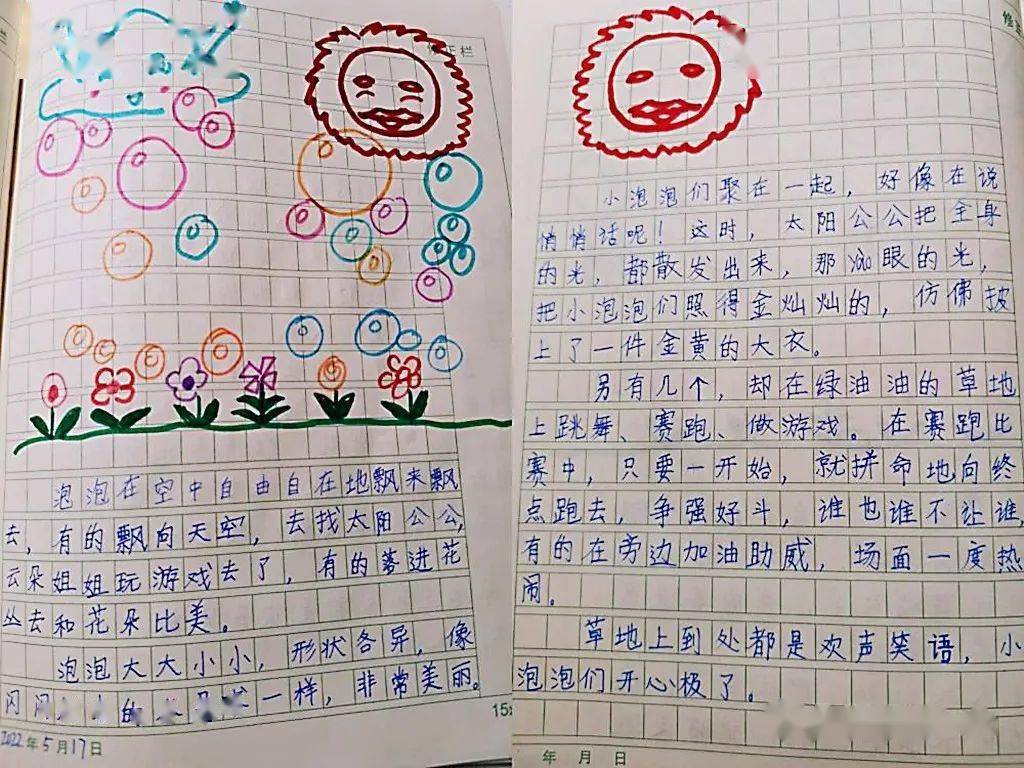 正栏
泡泡在空中自由自在地飘来飘
去，有的飘向天空，去找太阳公公，
云朵姐姐玩游戏去了，有的落进花
丛去和花朵比美。
泡泡大大小小，形状各异，像
闪闪的一样，非常美丽。
2022年5月17日
小泡泡们聚在一起，好像在说
悄悄话呢！这时，太阳公公把全身
的光，都散发出来，那yào眼的光，
把小泡泡们照得金灿灿的，仿佛披
上了一件金黄的大衣。
另有几个，却在绿油油的草地
上跳舞、赛跑、做游戏。在赛跑比
赛中，只要一开始，就拼命地向终
点跑去，争强好斗，谁也谁不让谁，
有的在旁边加油助威，场面一度热
闹。
草地上到处都是欢声笑语，小
泡泡们开心极了。
年 月 日